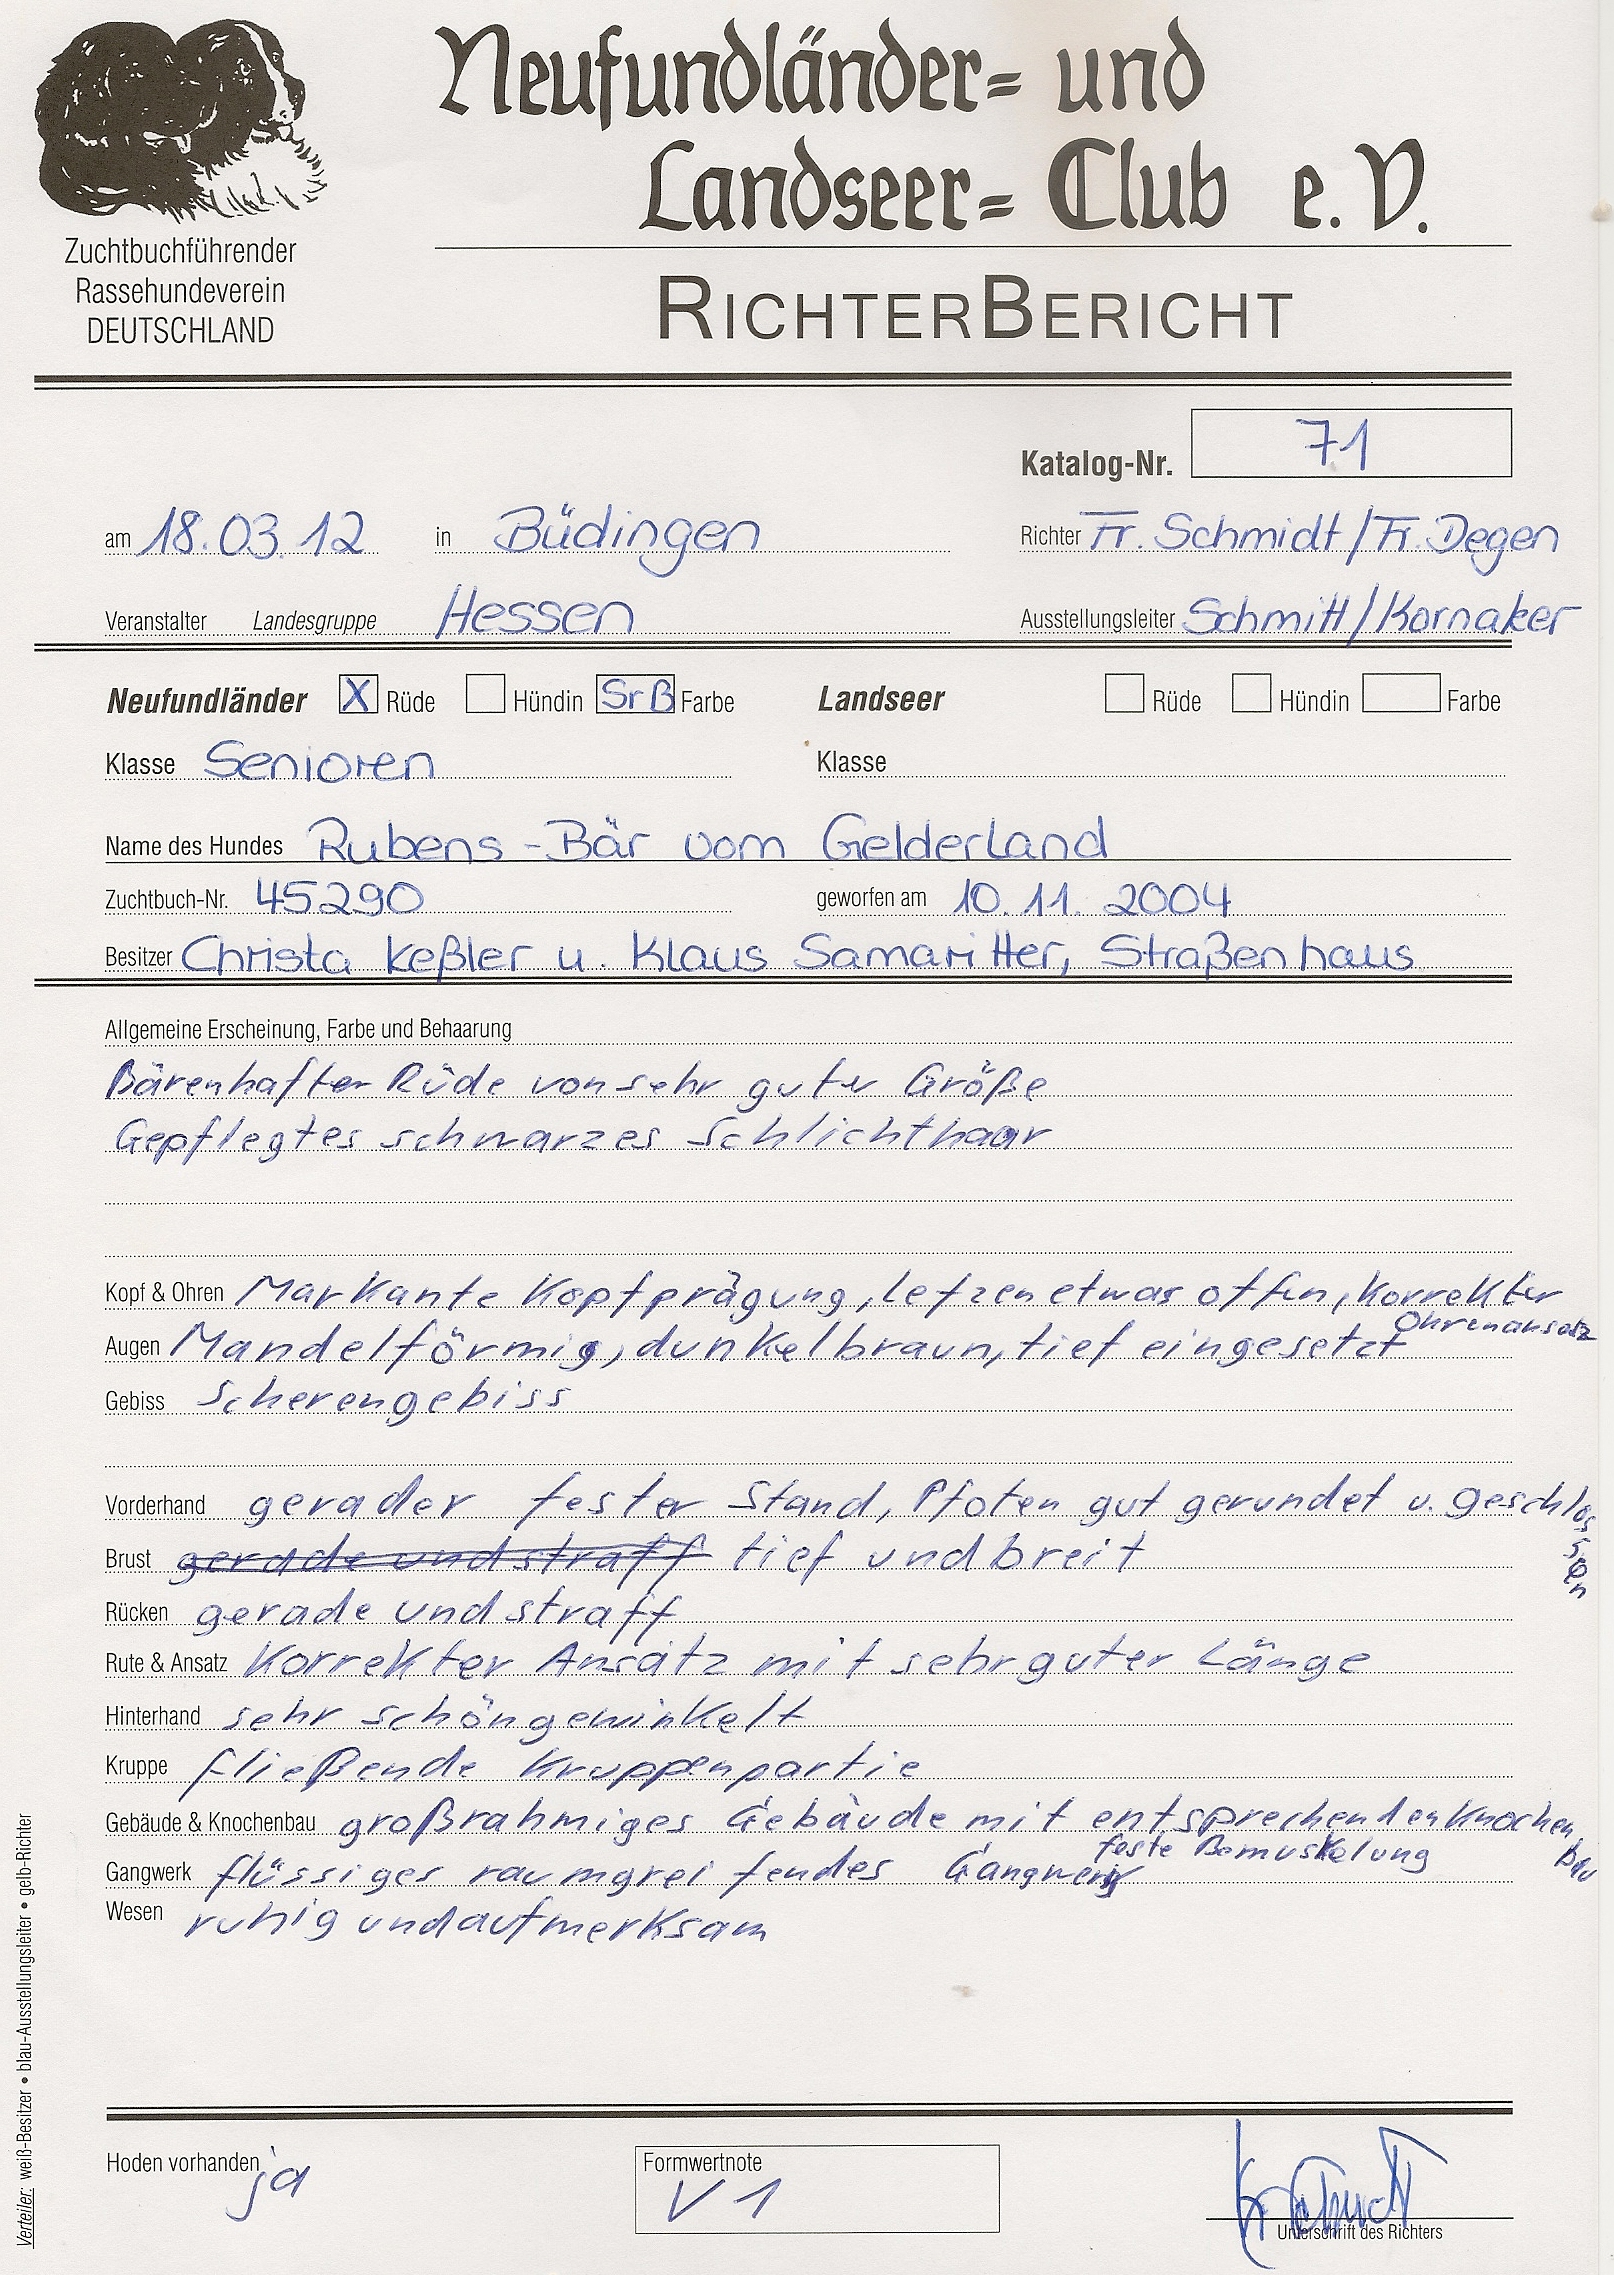 Neufundländer= und
Landseer= Club e. V.
Zuchtbuchführender
Rassehundeverein
DEUTSCHLAND
RICHTERBERICHT
Katalog-Nr. 71
am 18.03.12 in Büdingen Richter Fr. Schmidt / Fr. Degen
Veranstalter Landesgruppe Hessen Ausstellungsleiter Schmitt / Kornaker
Neufundländer X Rüde Hündin SrB Farbe Landseer Rüde Hündin Farbe
Klasse Senioren Klasse
Name des Hundes Rubens-Bär vom Gelderland
Zuchtbuch-Nr. 45290 geworfen am 10.11.2004
Besitzer Christa Keßler u. Klaus Samaritter, Straßenhaus
Allgemeine Erscheinung, Farbe und Behaarung
Bärenhafter Rüde von sehr guter Größe
Gepflegtes schwarzes Schlichthaar
Kopf & Ohren Markante Kopfprägung, Lefzen etwas offen, korrekter
Ohrenansatz
Augen Mandelförmig, dunkelbraun, tief eingesetzt
Gebiss Scherengebiss
Vorderhand gerader fester Stand, Pfoten gut gerundet u. geschlossen
Brust gerade und straff tief und breit
Rücken gerade und straff
Rute & Ansatz Korrekter Ansatz mit sehr guter Länge
Hinterhand sehr schön gewinkelt
Kruppe fließende Kruppenpartie
Gebäude & Knochenbau großrahmiges Gebäude mit entsprechenden Knochenbau
feste Bemuskelung
Gangwerk flüssiges raumgreifendes Gangwerk
Wesen ruhig und aufmerksam
Hoden vorhanden ja
Formwertnote
V 1
Unterschrift des Richters
Verteiler: weiß-Besitzer • blau-Ausstellungsleiter • gelb-Richter